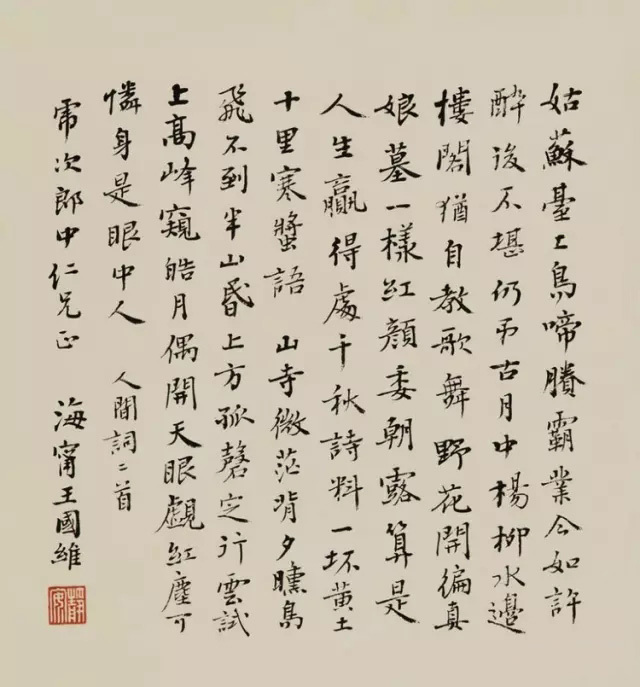 姑蘇臺上烏啼賸霸業今如許
醉後不堪仍弔古月中楊柳水邊
樓閣猶自教歌舞 野花開徧真
娘墓一樣紅顏委朝露算是
人生贏得處千秋詩料一抔黃土
十里寒螿語 山寺微茫背夕曛鳥
飛不到半山昏上方孤磬定行雲試
上高峰窺皓月偶開天眼覷紅塵可
憐身是眼中人 人間詞二首
乕次郎中仁兄正 海甯王國維
靜安